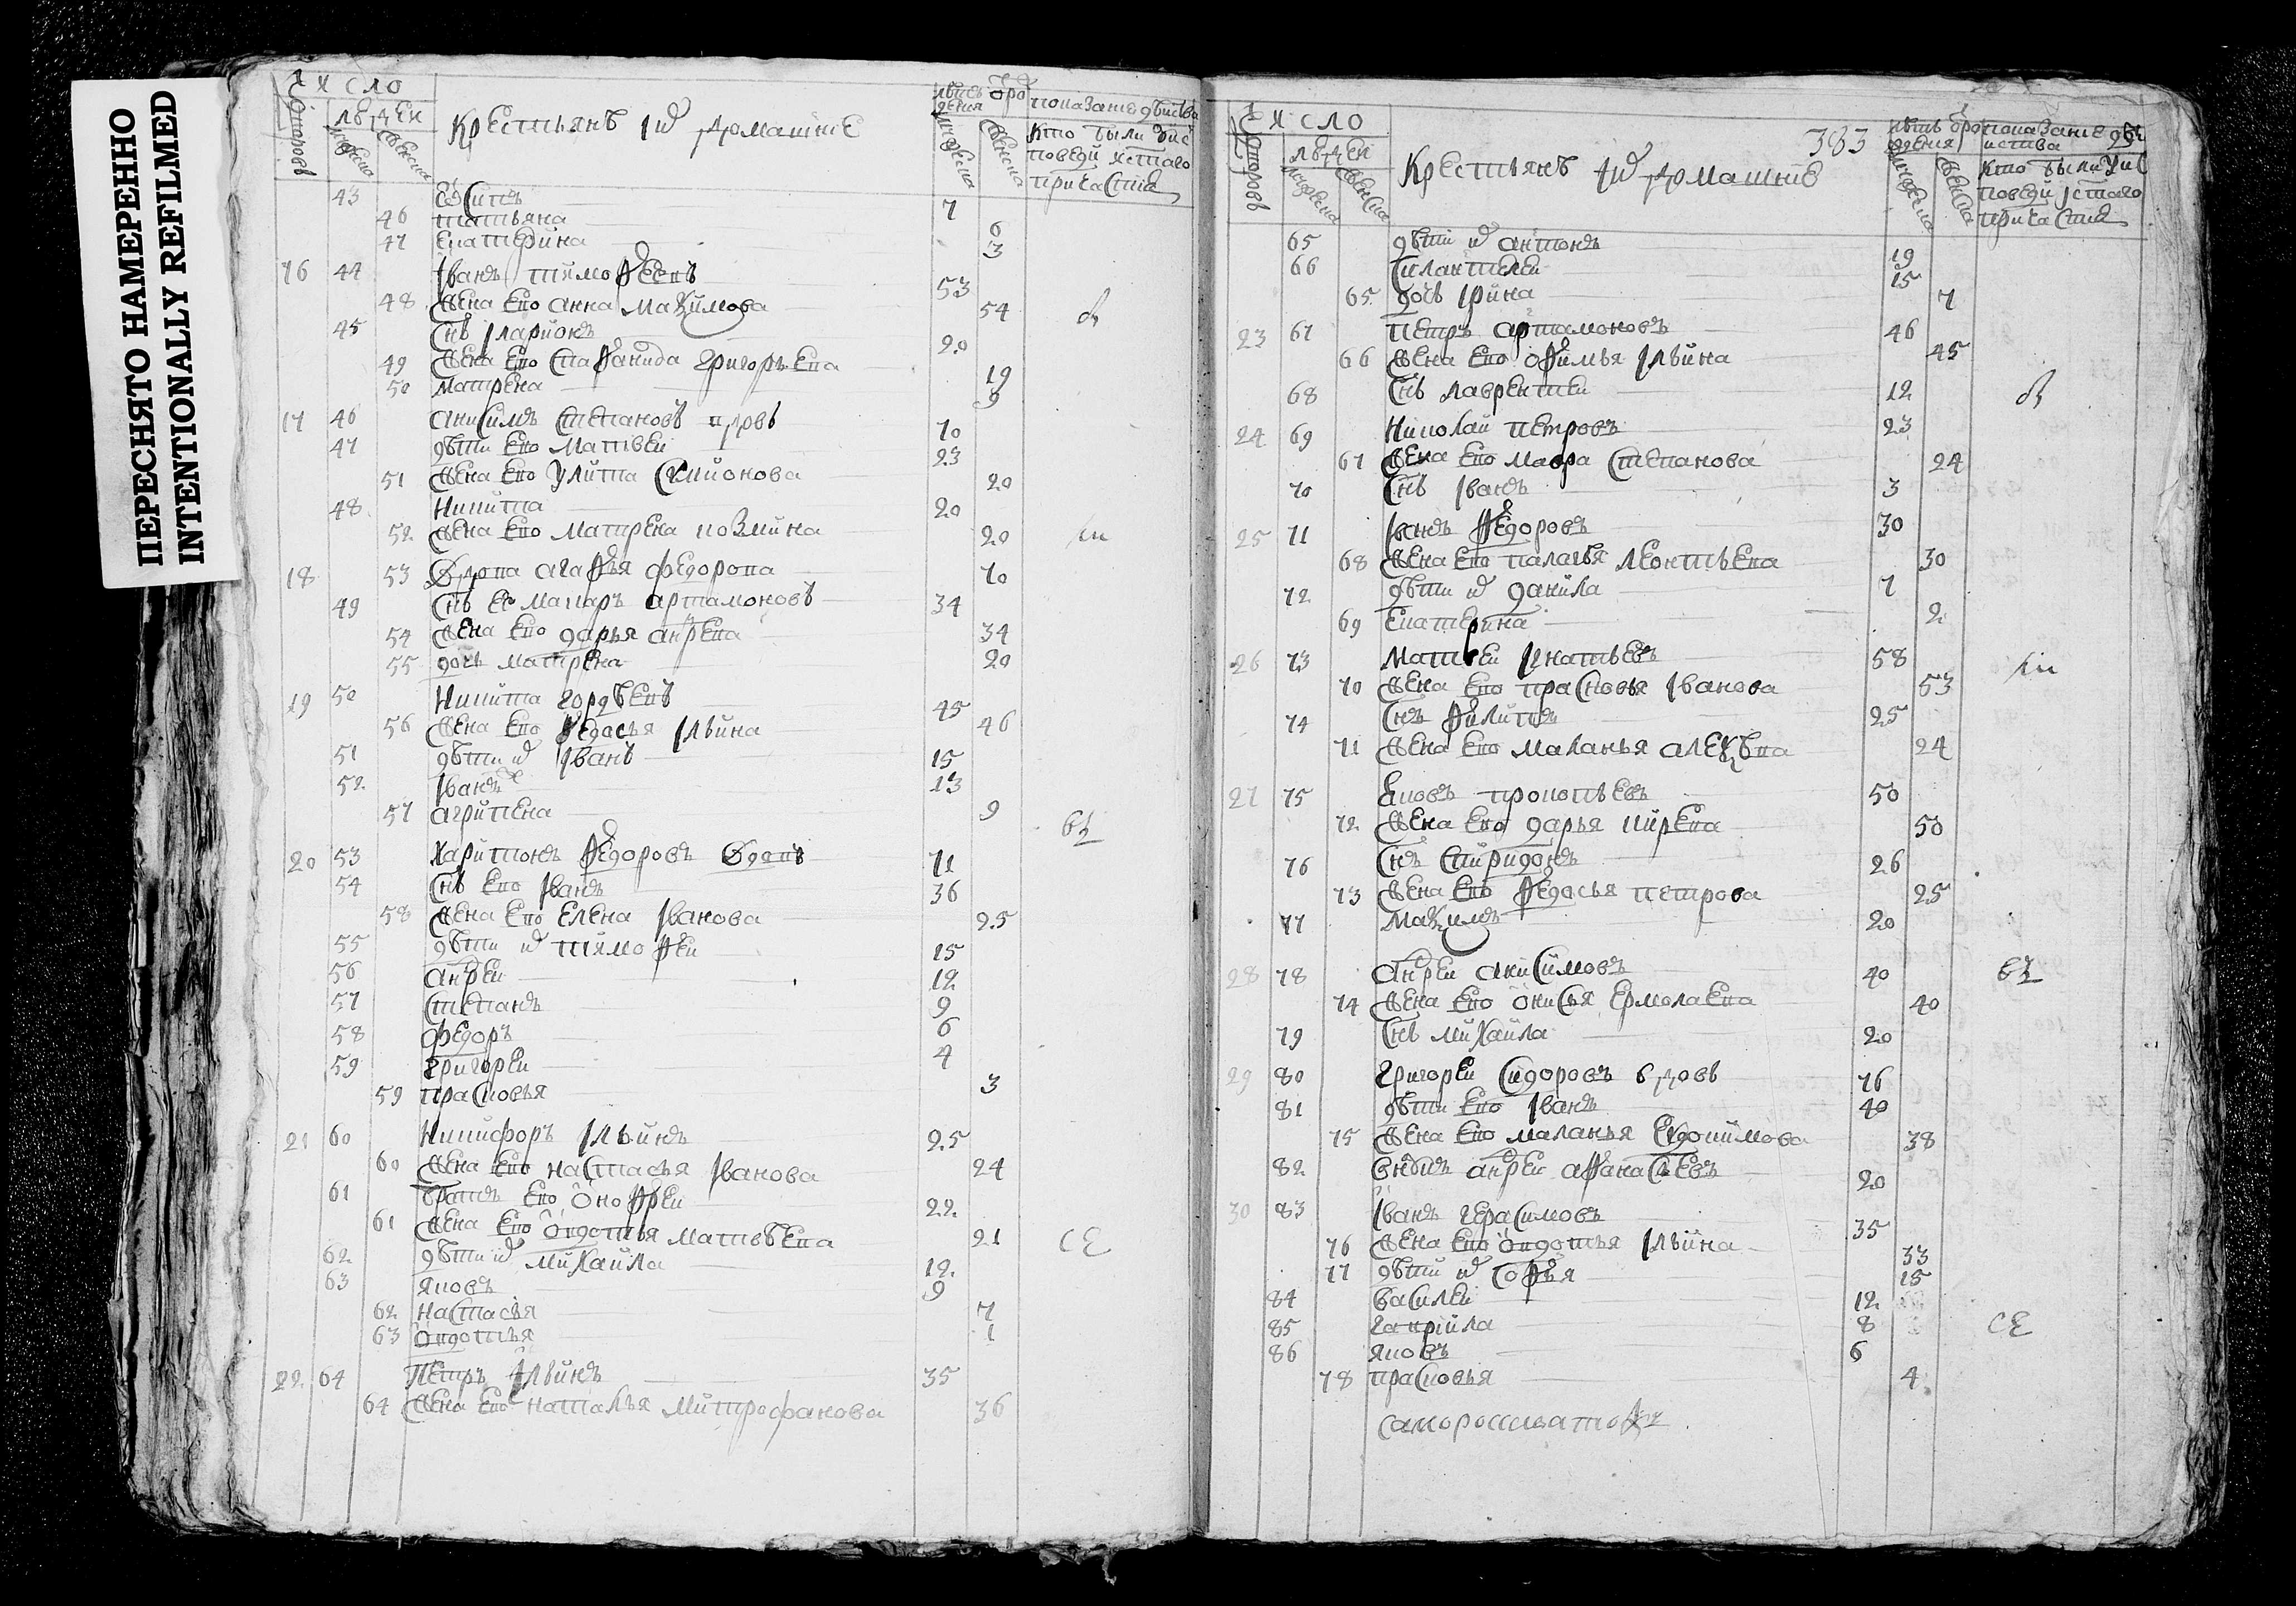 ПЕРЕСНЯТО НАМЕРЕННО
INTENTIONALLY REFILMED
Число
людей
Крестьянъ и домашние
кто были у ис
поведи и с того
причастия
43 Есипъ 7
46 татьяна 6
47 Екатерина 3
16 44 Іванъ тимофеевъ 53
48 жена ево анна Максимова 54
45 Снъ Iларионъ 20
49 жена ево Стефанида григорьева 19
50 матрена 9
17 46 анисимъ Степановъ вдовъ 70
47 дѣти ево Матвеи 23
51 жена ево Улита Симионова 20
48 Никита 20
52 жена ево Матрена козмина 20
18 53 вдова агафья федорова 70
49 Снъ ее макаръ артамоновъ 34
54 жена ево дарья андрева 34
55 дочь матрена 20
19 50 Никита гордѣевъ 45
56 жена ево федосья Iльина 46
51 дѣти их Іванъ 15
52 Іванъ 13
57 агрипена 9
20 53 Харитонъ федоровъ вдовъ 71
54 Снъ ево Іванъ 36
58 жена ево Елена Іванова 25
55 дѣти их тимофеи 15
56 андреи 12
57 Степанъ 9
58 федоръ 6
59 григореи 4
59 прасковья 3
21 60 Никифоръ Iльинъ 25
60 жена ево настасья Іванова 24
61 братъ ево Онофреи 22
61 жена ево Овдотья матвѣева 21
62 дѣти их михаила 12
63 яковъ 9
62 настасья 7
63 Овдотья 1
22 64 Петръ Iльинъ 35
64 жена ево наталья митрофанова 36
Число
людей
Крестьянъ и домашние
383
кто были у ис
поведи и с того
причастия
65 дѣти их антонъ 19
66 Силантелеи 15
65 дочь Iрина 7
23 67 петръ артамоновъ 46
66 жена ево офимья Iльина 45
68 Снъ лаврентеи 12
24 69 Николаи петровъ 23
67 жена ево мавра Степанова 24
70 Снъ Іванъ 3
25 71 Іванъ федоровъ 30
68 жена ево палагья леонтьева 30
72 дѣти их данила 7
69 Екатерина 2
26 73 Матвеи Iгнатьевъ 58
70 жена ево прасковья Іванова 53
74 Снъ филипъ 25
71 жена ево маланья алексѣва 24
27 75 яковъ прокопьевъ 50
72 жена ево дарья кирева 50
76 Снъ Спиридонъ 26
73 жена ево федосья петрова 25
77 Максимъ 20
28 78 андреи анисимовъ 40
74 жена ево Онисья Ермолаева 40
79 Снъ михаила 20
29 80 григореи Сидоровъ вдовъ 76
81 дѣти ево Іванъ 40
75 жена ево маланья Евдокимова 38
82 внукъ андреи афанасьевъ 20
30 83 Іванъ герасимовъ 35
76 жена ево Овдотья Iльина 33
77 дѣти их Софья 15
84 василеи 12
85 гавріила 8
86 яковъ 6
78 прасковья 4